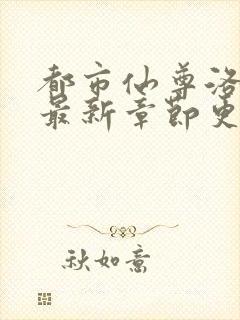 都市仙尊洛
最新章節更
秋如意